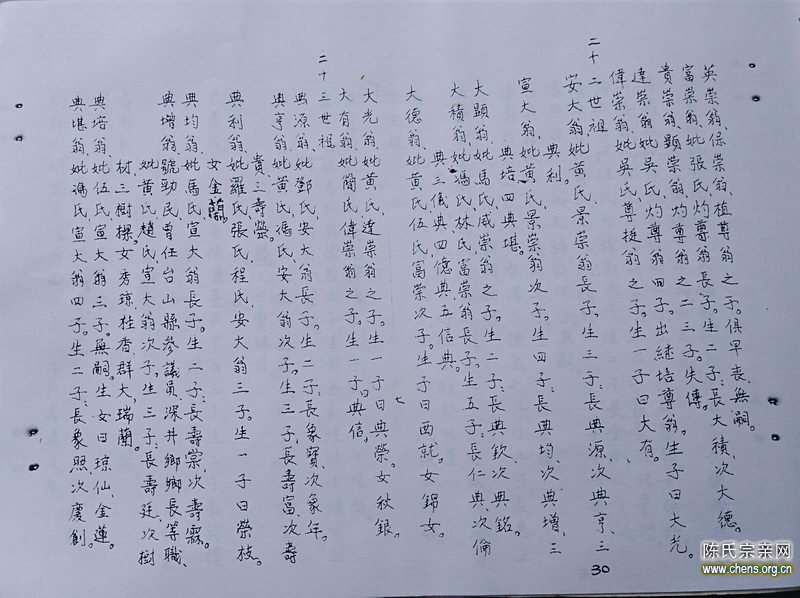 英崇翁、保崇翁、植尊翁之子。俱早丧、無嗣。
富崇翁、妣張氏、灼尊翁長子。生二子：長大積、次大德。
貴崇翁、顯崇翁、灼尊翁之二三子。失傳。
達崇翁、妣吳氏、灼尊翁四子。出繼培尊翁。生子曰大光。
偉崇翁、妣吳氏、尊挺翁之子。生一子曰大有。
二十二世祖
安大翁、妣黃氏、景崇翁長子。生三子：長典源、次典亨、三
典利。
宣大翁、妣黃氏、景崇翁次子。生四子：長典均、次典增、三
典培、四典堪。
大顯翁、妣馬氏、威崇翁之子。生二子：長典欽、次典銘。
大積翁、妣馮氏、林氏、富崇翁長子。生五子：長仁典、次倫
典、三儀典、四億典、五信典。
大德翁、妣黃氏、伍氏、富崇次子。生子曰西就。女錦女。
大光翁、妣黃氏、達崇翁之子。生一子曰典榮。女秋銀。
大有翁、妣簡氏、偉崇翁之子。生一子曰典信。
二十三世祖
典源翁、妣鄧氏、安大翁長子。生二子：長象寶、次象年。
典亨翁、妣黃氏、馮氏、安大翁次子。生三子：長壽富、次壽
貴、三壽榮。
典利翁、妣羅氏、張氏、程氏、安大翁三子。生一子曰榮枝。
女金蘭。
典均翁、妣馬氏、宣大翁長子。生二子：長壽崇、次壽霖。
典增翁、號勁民、曾任台山縣參議員、深井鄉鄉長等職、
妣黃氏、趙氏、宣大翁次子。生三子：長壽廷、次樹
材、三樹樑。女秀琼、桂香、群大、瑞蘭。
典培翁、妣伍氏、宣大翁三子。無嗣。生女曰琼仙、金蓮。
典堪翁、妣馮氏、宣大翁四子。生二子：長象照、次慶創。
30
陈氏宗亲网
www.chens.org.cn